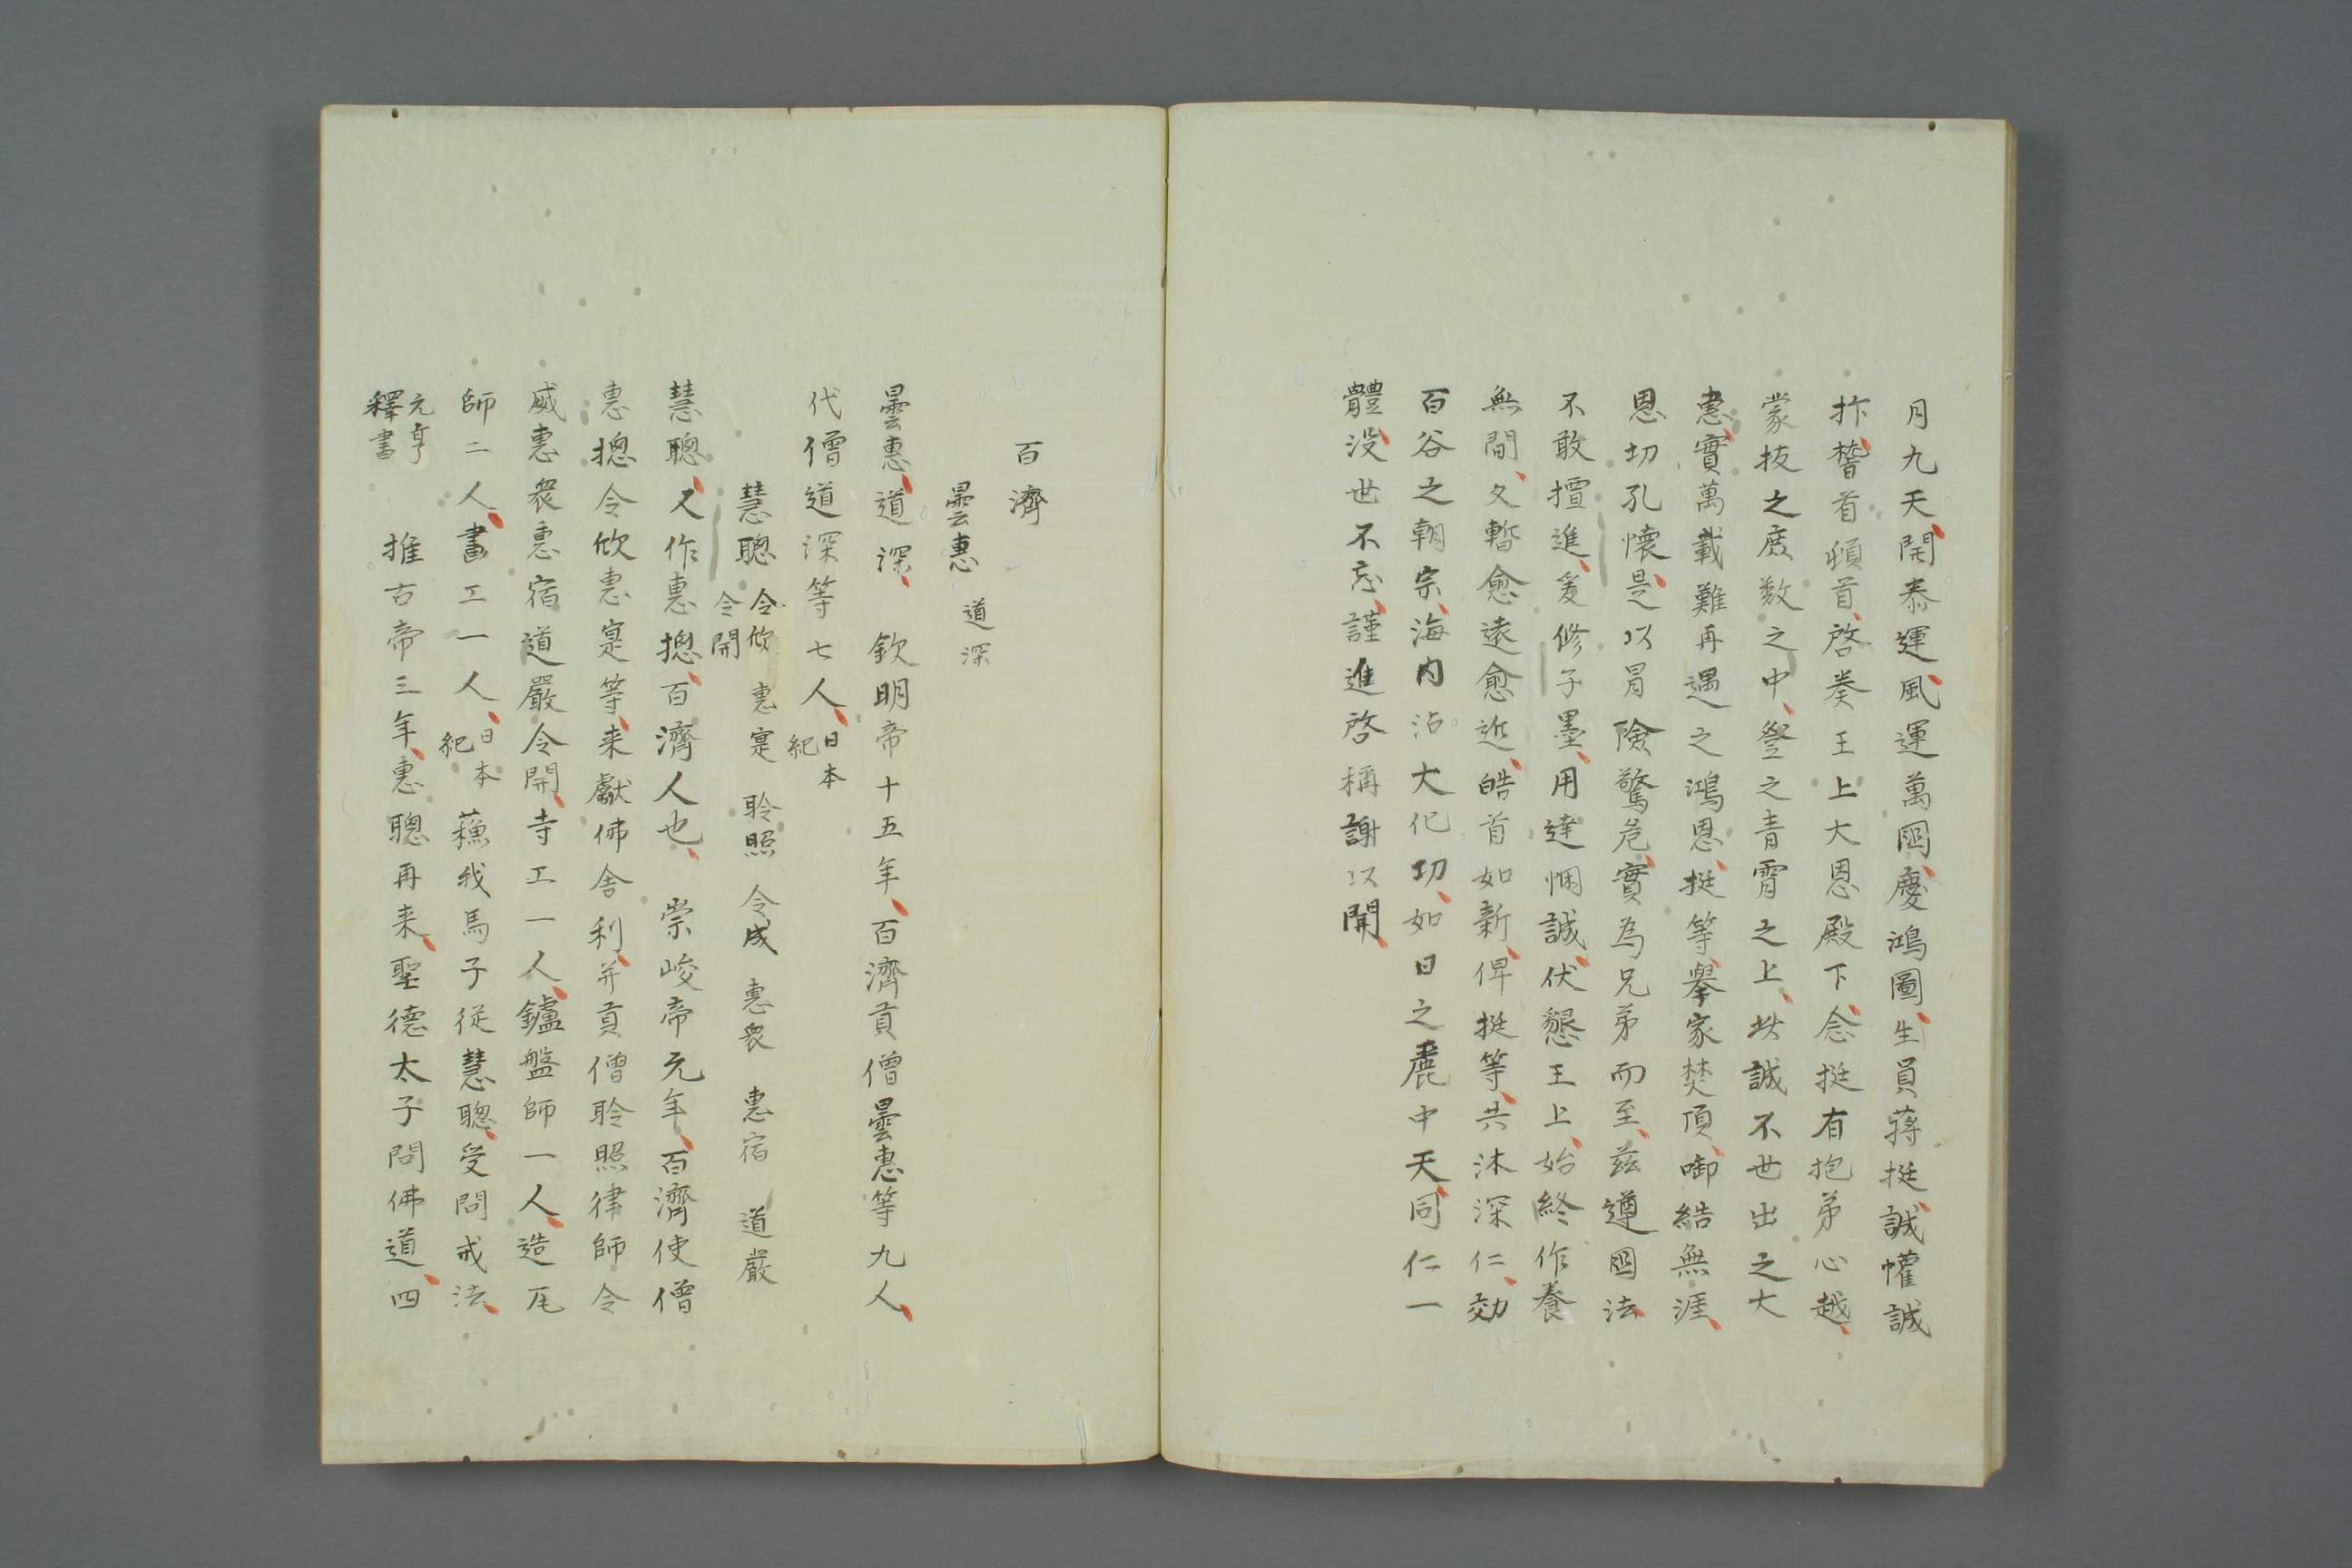 月九天開泰運風運萬國慶鴻圖生員蔣挺誠懽誠
抃稽首頓首啓奏王上大恩殿下念挺有抱弟心越
蒙拔之度数之中登之青霄之上、誠不世出之大
惠實萬載難再遇之鴻恩挺等舉家焚頂啣結無涯
恩切孔懷是以冒險驚危實為兄弟而至兹遵國法
不敢擅進爰修子墨用達悃誠伏懇王上始終作養
無間久暫愈遠愈近皓首如新俾挺等共沐深仁効
百谷之朝宗海内沾大化切如日之麗中天同仁一
體没世不忘謹進啓稱謝以聞
百濟
曇惠 道深
曇惠道深 欽明帝十五年百濟貢僧曇惠等九人
代僧道深等七人日本紀
慧聰 令欣 令開 惠寔 聆照 令威 惠衆 惠宿 道嚴
慧聰又作惠摠百濟人也 崇峻帝元年百濟使僧
惠摠令欣惠寔等来獻佛舎利并貢僧聆照律師令
威惠衆惠宿道嚴令開寺工一人鑪盤師一人造瓦
師二人畫工一人日本紀 蘓我馬子従慧聰受問戒法
元亨釋書 推古帝三年惠聰再来聖德太子問佛道四